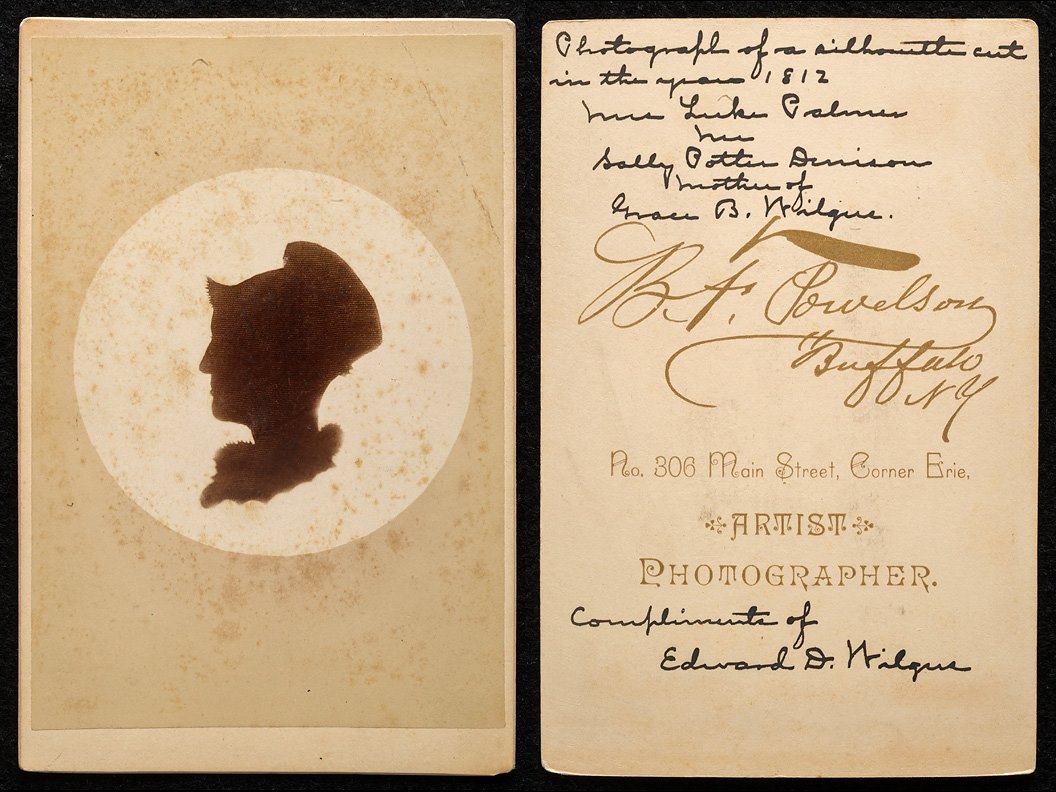 Photograph of a silhouette cut
in the year 1812
Mrs Luke Palmer
née
Sally Potter Denison
Mother of
Grace B. Wilgus.
B. F. Powelson
Buffalo
NY
No. 306 Main Street, Corner Erie,
ARTIST
PHOTOGRAPHER.
Compliments of
Edward D. Wilgus